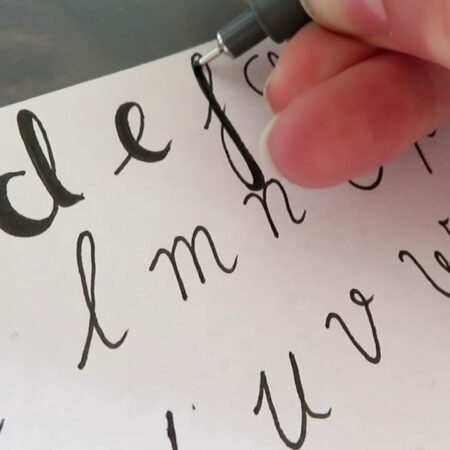 d e f
l m n
u v w